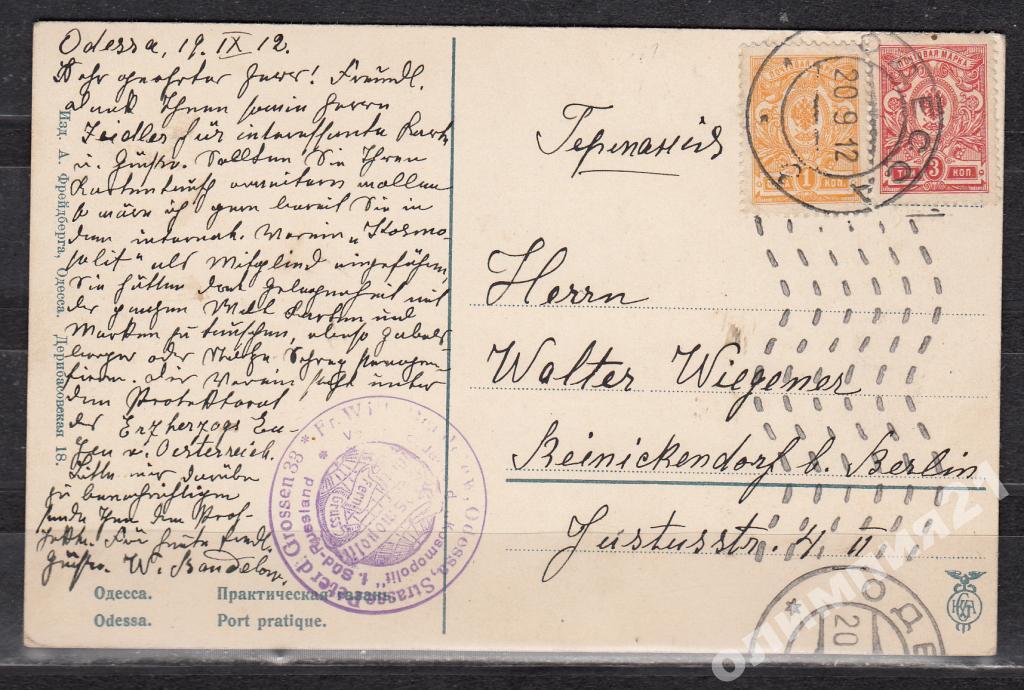 Odessa, 19. IX 12.
Sehr geehrter Herr! Freundl.
dank Ihnen sowie Herrn
Zeidler für interessante Karte
u. Grüsse. Sollten Sie Ihren
Kartentausch erweitern wollen
so wäre ich gern bereit Sie in
den internat. Verein „Kosmo-
polit" als Mitglied einzuführen,
Sie hätten dort Gelegenheit mit
der ganzen Welt Karten und
Marken zu tauschen, ebenso
oder
Der Verein steht unter
dem Protektorat
des Erzherzogs Eu-
gen v. Oesterreich.
Bitte mir darüber
zu benachrichtigen
sende Ihnen dann
Für heute freundl.
Grüsse. W. Bandelow.
Изд. А. Фрейдберга, Одесса. Дерибасовская 18.
Одесса. Практическая гавань.
Odessa. Port pratique.
* Fr. W. Odessa, Strasse Peter d. Grossen 33 *
„Kosmopolit" f. Süd-Russland
Германія
Herrn
Walter Wiegener
Reinickendorf b. Berlin
Justusstr. 4 II
ПОЧТОВАЯ МАРКА
1 КОП
ПОЧТОВАЯ МАРКА
ТРИ 3 КОП
ОДЕССА
20 9 12
ОДЕ
20
ОЛИМПИЯ21